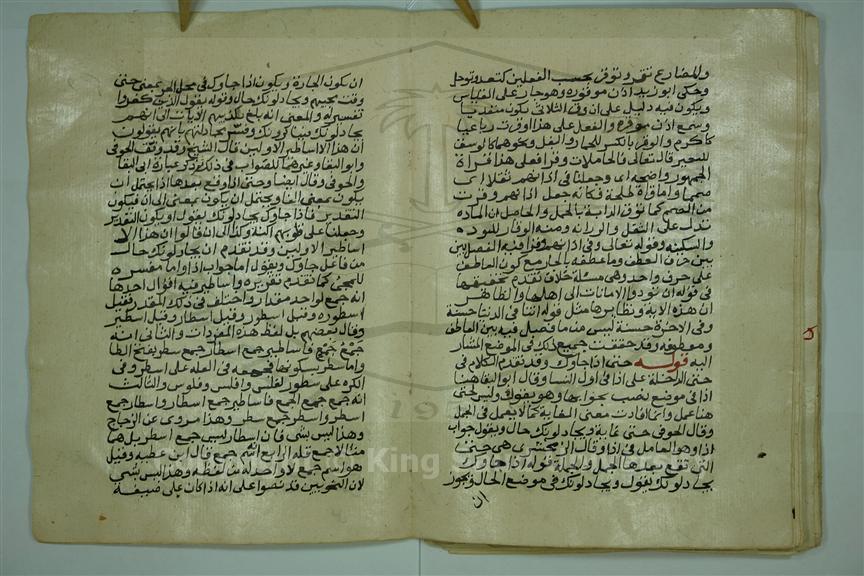 والمضارع تقر وتوقر بحسب الفعلين كتعد وتوجل
وحكى ابو زيد اذن موقورة وهو جار على القياس
ويكون فيه دليل على ان وقر الثلاثي يكون متعديا
وسمع اذن موقرة والفعل على هذا اوقرت رباعيا
كاكرم والوقر بالكسر للحمار والبغل ونحوهما كالوسق
للبعير قال تعالى فالحاملات وقرا فعلى هذا قراة
الجمهور واضحة اى وجعلنا في اذانهم ثقلا اى
صمما واما قراة طلحة فكانه جعل اذانهم وقرت
من الصمم كما توقر الدابة بالحمل والحاصل ان المادة
تدل على الثقل والرزانة ومنه الوقار للتودة
والسكينة وقوله تعالى وفي اذانهم وقرا فيه الفصل بين
حرف العطف وما عطفه بالجار مع كون العاطف
على حرف واحد وهي مسئلة خلاف تقدم تحقيقها
في قوله ان تودوا الامانات الى اهلها والظاهر
ان هذه الاية ونظايرها مثل قوله اتنا في الدنيا حسنة
وفي الاخرة حسنة ليس مما فصل فيه بين العاطف
ومعطوفه وقد حققت جميع ذلك في الموضع المشار
اليه قوله حتى اذا جاوك وقد تقدم الكلام في
حتى الداخلة على اذا في اول النسا وقال ابو البقا هنا
اذا في موضع نصب بجوابها وهو يقول وليس لحتى
هنا عمل وانما افادت معنى الغاية كما لا يعمل في الجمل
وقال الحوفي حتى غاية ويجادلونك حال ويقول جواب
اذا وهو العامل في اذا وقال الزمخشري هي حتى
التي تقع بعدها الجمل والجملة قوله اذا جاوك
يجادلونك يقول ويجادلونك في موضع الحال ويجوز
ان
ان تكون الجارة ويكون اذا جاوك في محل الجر بمعنى حتى
وقت مجيهم ويجادلونك حال وقوله يقول الذين كفروا
تفسير له والمعنى انه بلغ تكذيبهم الايات الى انهم
يجادلونك ويناكرونك وفسر مجادلتهم بانهم يقولون
ان هذا الا اساطير الاولين قال الشيخ وقد وفق الحوفي
وابو البقا وغيرهما للصواب في ذلك ثم ذكر عبارة ابى البقا
والحوفي وقال ايضا وحتى اذا وقع بعدها اذا يحتمل ان
يكون بمعنى الفا ويحتمل ان يكون بمعنى الى ان فيكون
التقدير فاذا جاوك يجادلونك يقول او يكون التقدير
وجعلنا على قلوبهم اكنة وكذا الى ان قالوا ان هذا الا
اساطير الاولين وقد تقدم ان يجادلونك حال
من فاعل جاوك ويقول اما جواب اذا واما مفسره
للمجئ كما تقدم تقريره واساطير فيه اقوال احدها
انه جمع لواحد مقدر واختلف في ذلك المقدر فقيل
اسطورة وقيل اسطور وقيل اسطار وقيل اسطير
وقال بعضهم بل لفظ هذه المفردات والثاني انه
جمع جمع فاساطير جمع اسطار جمع سطر بفتح الطا
واما سطر بسكونها فجمعه في القلة على اسطر وفي
الكثرة على سطور كفلس وافلس وفلوس والثالث
انه جمع جمع الجمع فاساطير جمع اسطار واسطار جمع
اسطر واسطر جمع سطر وهذا مروى عن الزجاج
وهذا ليس بشى فان اسطار ليس جمع اسطر بل هما
مثالا جمع قلة الرابع انه اسم جمع قال ابن عطية وقيل
هو اسم جمع لا واحد له من لفظه وهذا ليس بشى
لان النحويين قد نصوا على انه اذا كان على صيغة
King